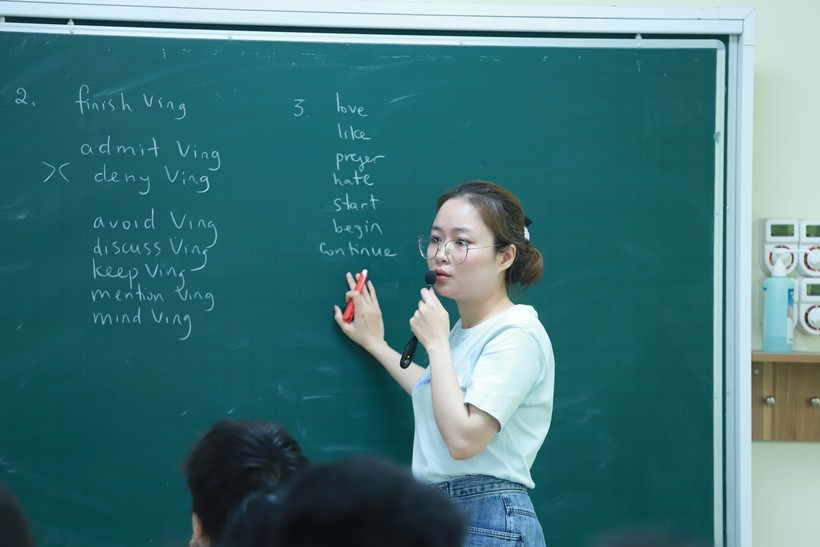 2. finish Ving
admit Ving
>< deny Ving
avoid Ving
discuss Ving
keep Ving
mention Ving
mind Ving
3. love
like
prefer
hate
start
begin
continue